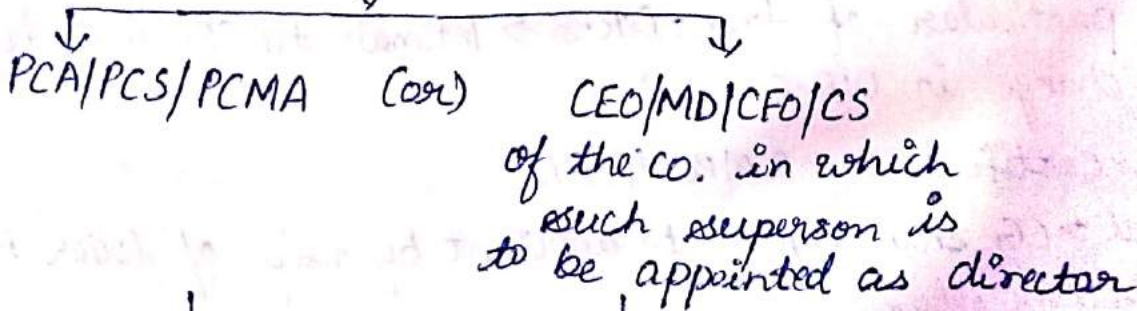 PCA/PCS/PCMA (or) CEO/MD/CFO/CS
of the co. in which
such superson is
to be appointed as director